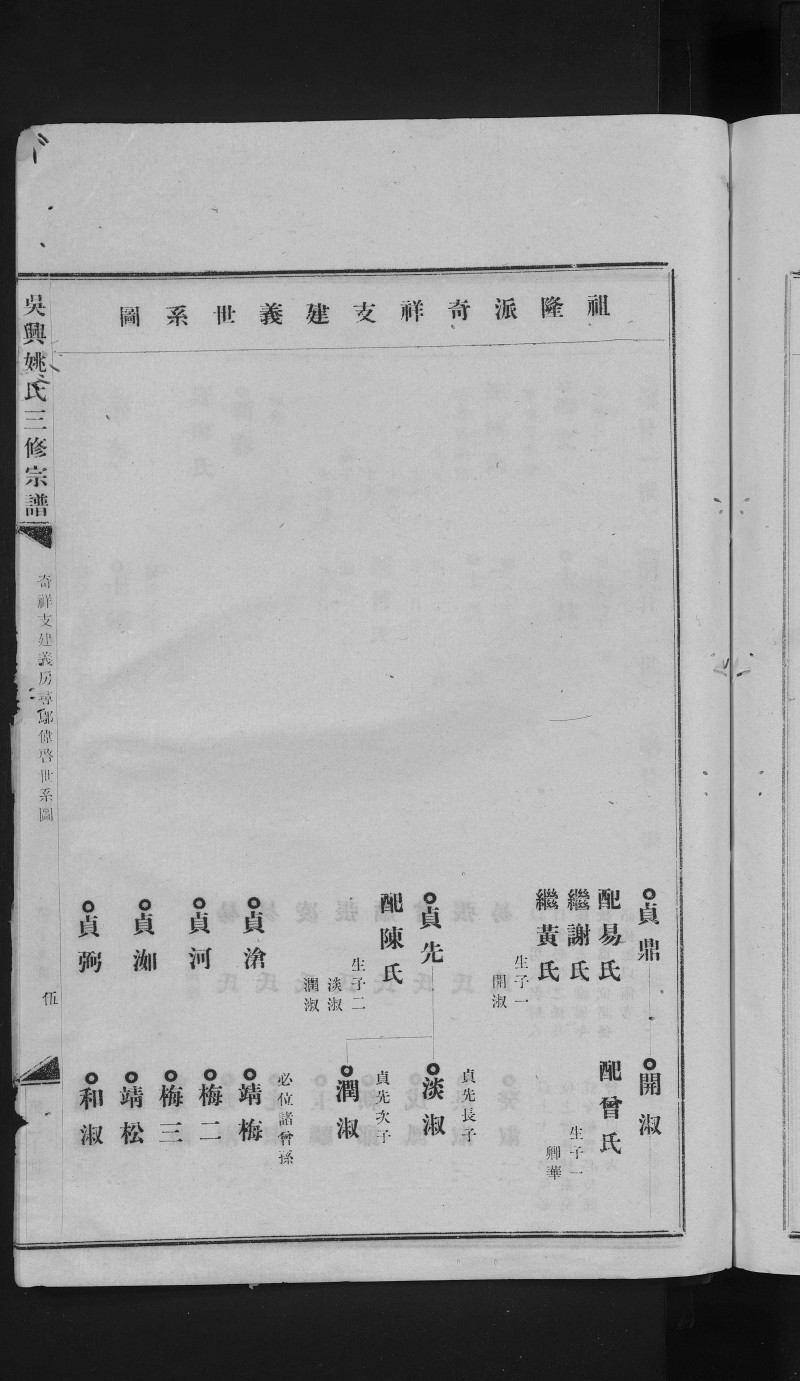 祖隆派奇祥支建義世系圖
貞鼎
配易氏
繼謝氏
繼黃氏
生子一
開淑
貞先
配陳氏
生子二
淡淑
潤淑
貞滄
貞河
貞洳
貞弼
開淑
配曾氏
生子一
卿華
貞先長子
淡淑
貞先次子
潤淑
必位諸曾孫
靖梅
梅二
梅三
靖松
和淑
吳興姚氏三修宗譜
奇祥支建義房尋鄔偉啓世系圖
伍